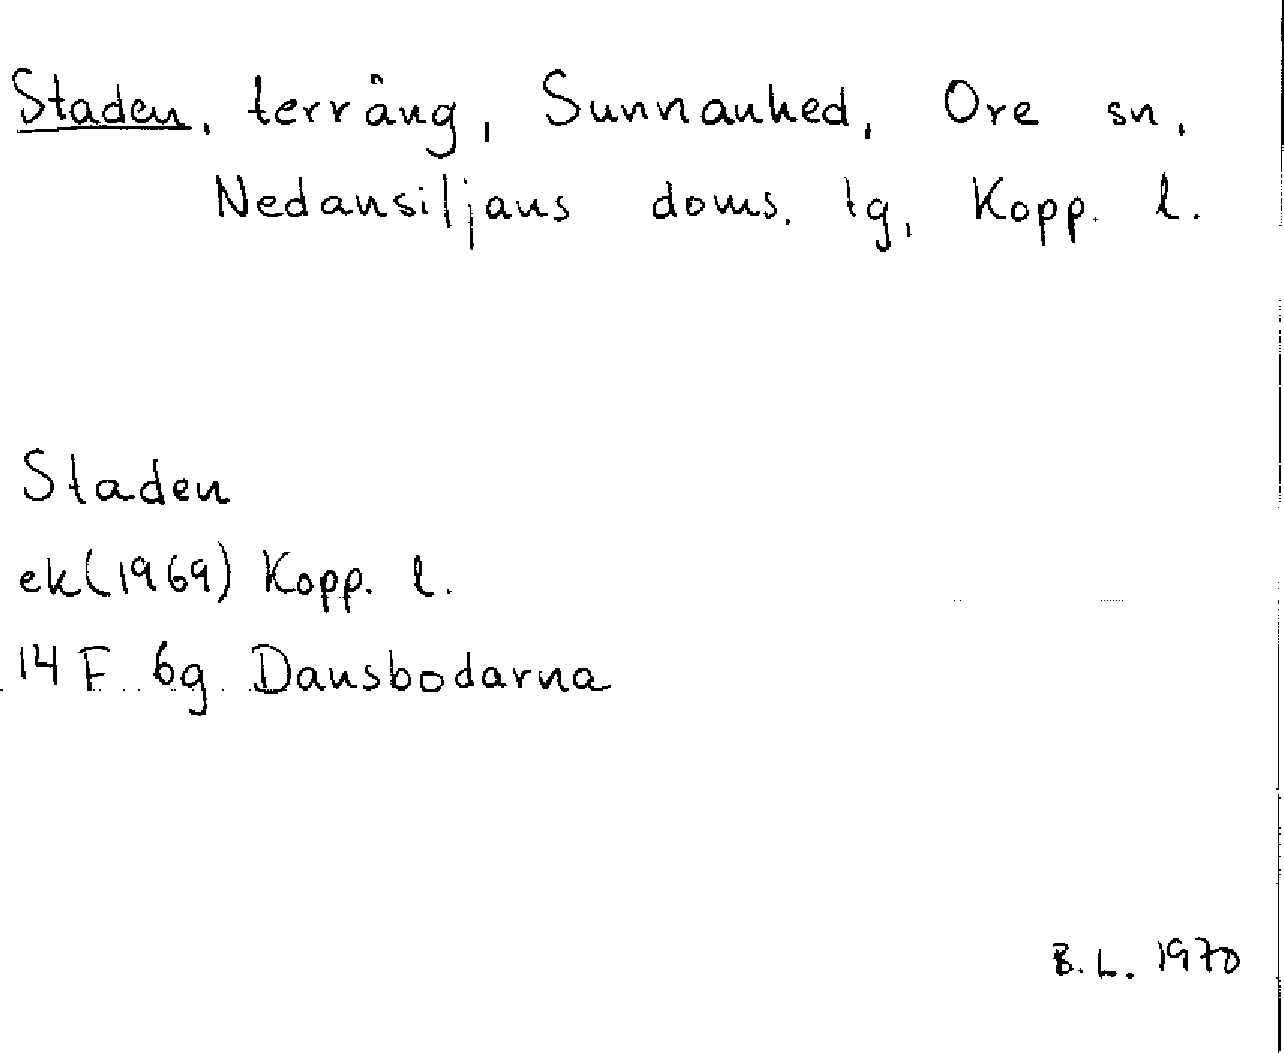 Staden, terräng, Sunnanhed, Ore sn,
Nedansiljans doms. tg, Kopp. l.
Staden
ek(1969) Kopp. l.
14 F 6g Dansbodarna
B.L. 1970